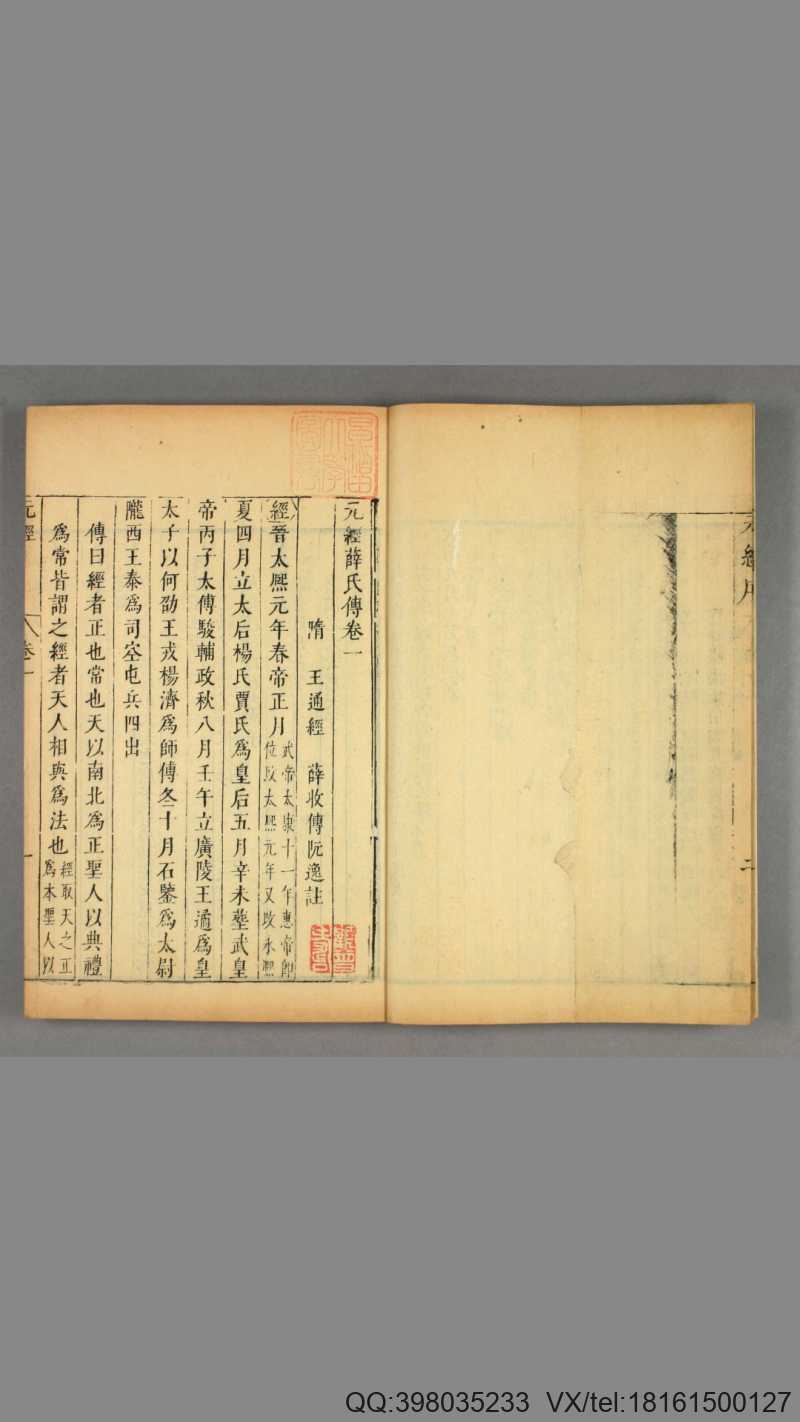 元經薛氏傳卷一
隋 王通經 薛收傳阮逸註
經晉太熙元年春帝正月武帝太康十一年惠帝即位改太熙元年又改永熙
夏四月立太后楊氏賈氏爲皇后五月辛未塟武皇
帝丙子太傅駿輔政秋八月壬午立廣陵王遹爲皇
太子以何劭王戎楊濟爲師傅冬十月石鑒爲太尉
隴西王泰爲司空屯兵四出
傳曰經者正也常也天以南北爲正聖人以典禮
爲常皆謂之經者天人相與爲法也經取天之正爲本聖人以
元經 卷一 一
QQ:398035233 VX/tel:18161500127